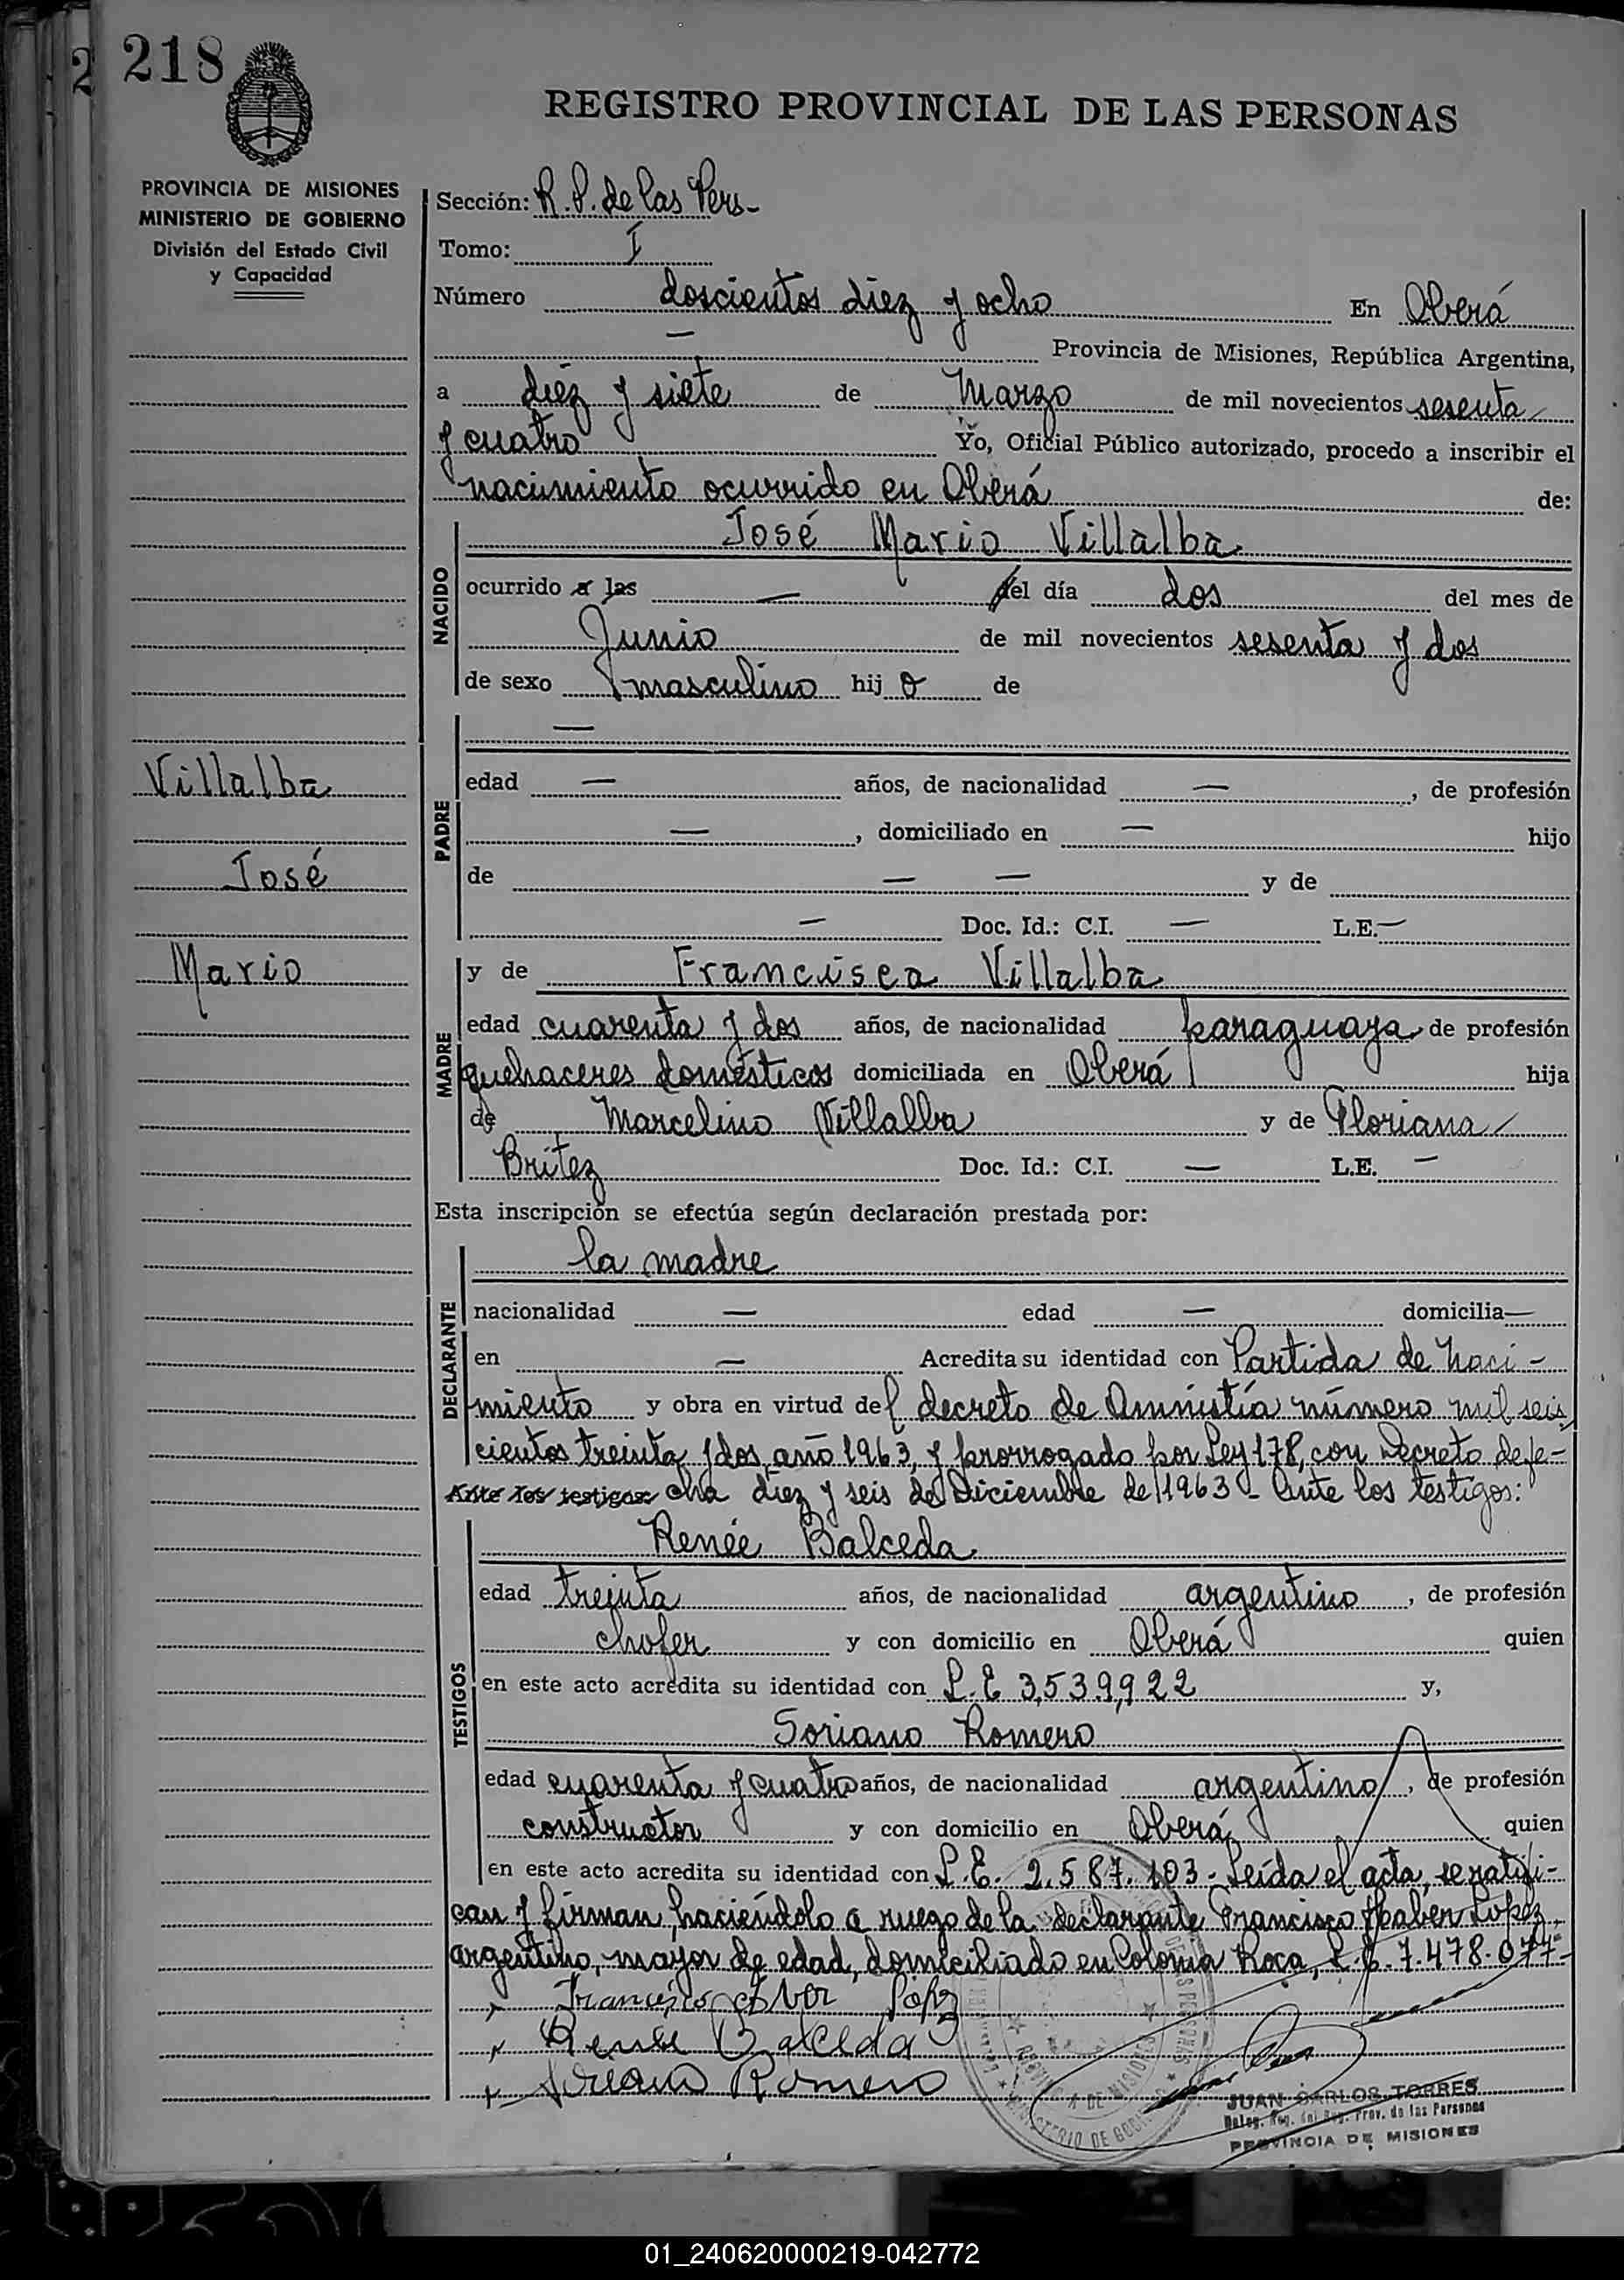 218
REGISTRO PROVINCIAL DE LAS PERSONAS
PROVINCIA DE MISIONES
MINISTERIO DE GOBIERNO
División del Estado Civil
y Capacidad
Sección: R.P. de las Pers-
Tomo: I
Número doscientos diez y ocho En Oberá
— Provincia de Misiones, República Argentina,
a diez y siete de Marzo de mil novecientos sesenta
y cuatro Yo, Oficial Público autorizado, procedo a inscribir el
nacimiento ocurrido en Oberá de:
NACIDO
José Mario Villalba
ocurrido a las — del día dos del mes de
Junio de mil novecientos sesenta y dos
de sexo masculino hijo de
Villalba
José
Mario
PADRE
—
edad — años, de nacionalidad —, de profesión
—, domiciliado en — hijo
de — — y de
— Doc. Id.: C.I. — L.E. —
MADRE
y de Francisca Villalba
edad cuarenta y dos años, de nacionalidad paraguaya de profesión
quehaceres domésticos domiciliada en Oberá hija
de Marcelino Villalba y de Floriana
Britez Doc. Id.: C.I. — L.E. —
Esta inscripción se efectúa según declaración prestada por:
DECLARANTE
la madre
nacionalidad — edad — domicilia—
en — Acredita su identidad con Partida de naci-
miento y obra en virtud del decreto de Amnistía número mil seis
cientos treinta y dos, año 1963, y prorrogado por Ley 178, con Decreto de fe-
Ante los testigos: cha diez y seis de Diciembre de 1963 - Ante los testigos:
TESTIGOS
Renée Balceda
edad treinta años, de nacionalidad argentino, de profesión
chofer y con domicilio en Oberá quien
en este acto acredita su identidad con L.E 3,539,922 y,
Soriano Romero
edad cuarenta y cuatro años, de nacionalidad argentino, de profesión
constructor y con domicilio en Oberá quien
en este acto acredita su identidad con L.E. 2.587.103 - Leída el acta, se ratifi-
can y firman, haciéndolo a ruego de la declarante Francisco Lopez,
argentino, mayor de edad, domiciliado en Colonia Roca, L.E. 7.478.077-
Francisco Lopez
Renée Balceda
Soriano Romero
JUAN CARLOS TORRES
Deleg. Reg. del Reg. Prov. de las Personas
PROVINCIA DE MISIONES
01_240620000219-042772